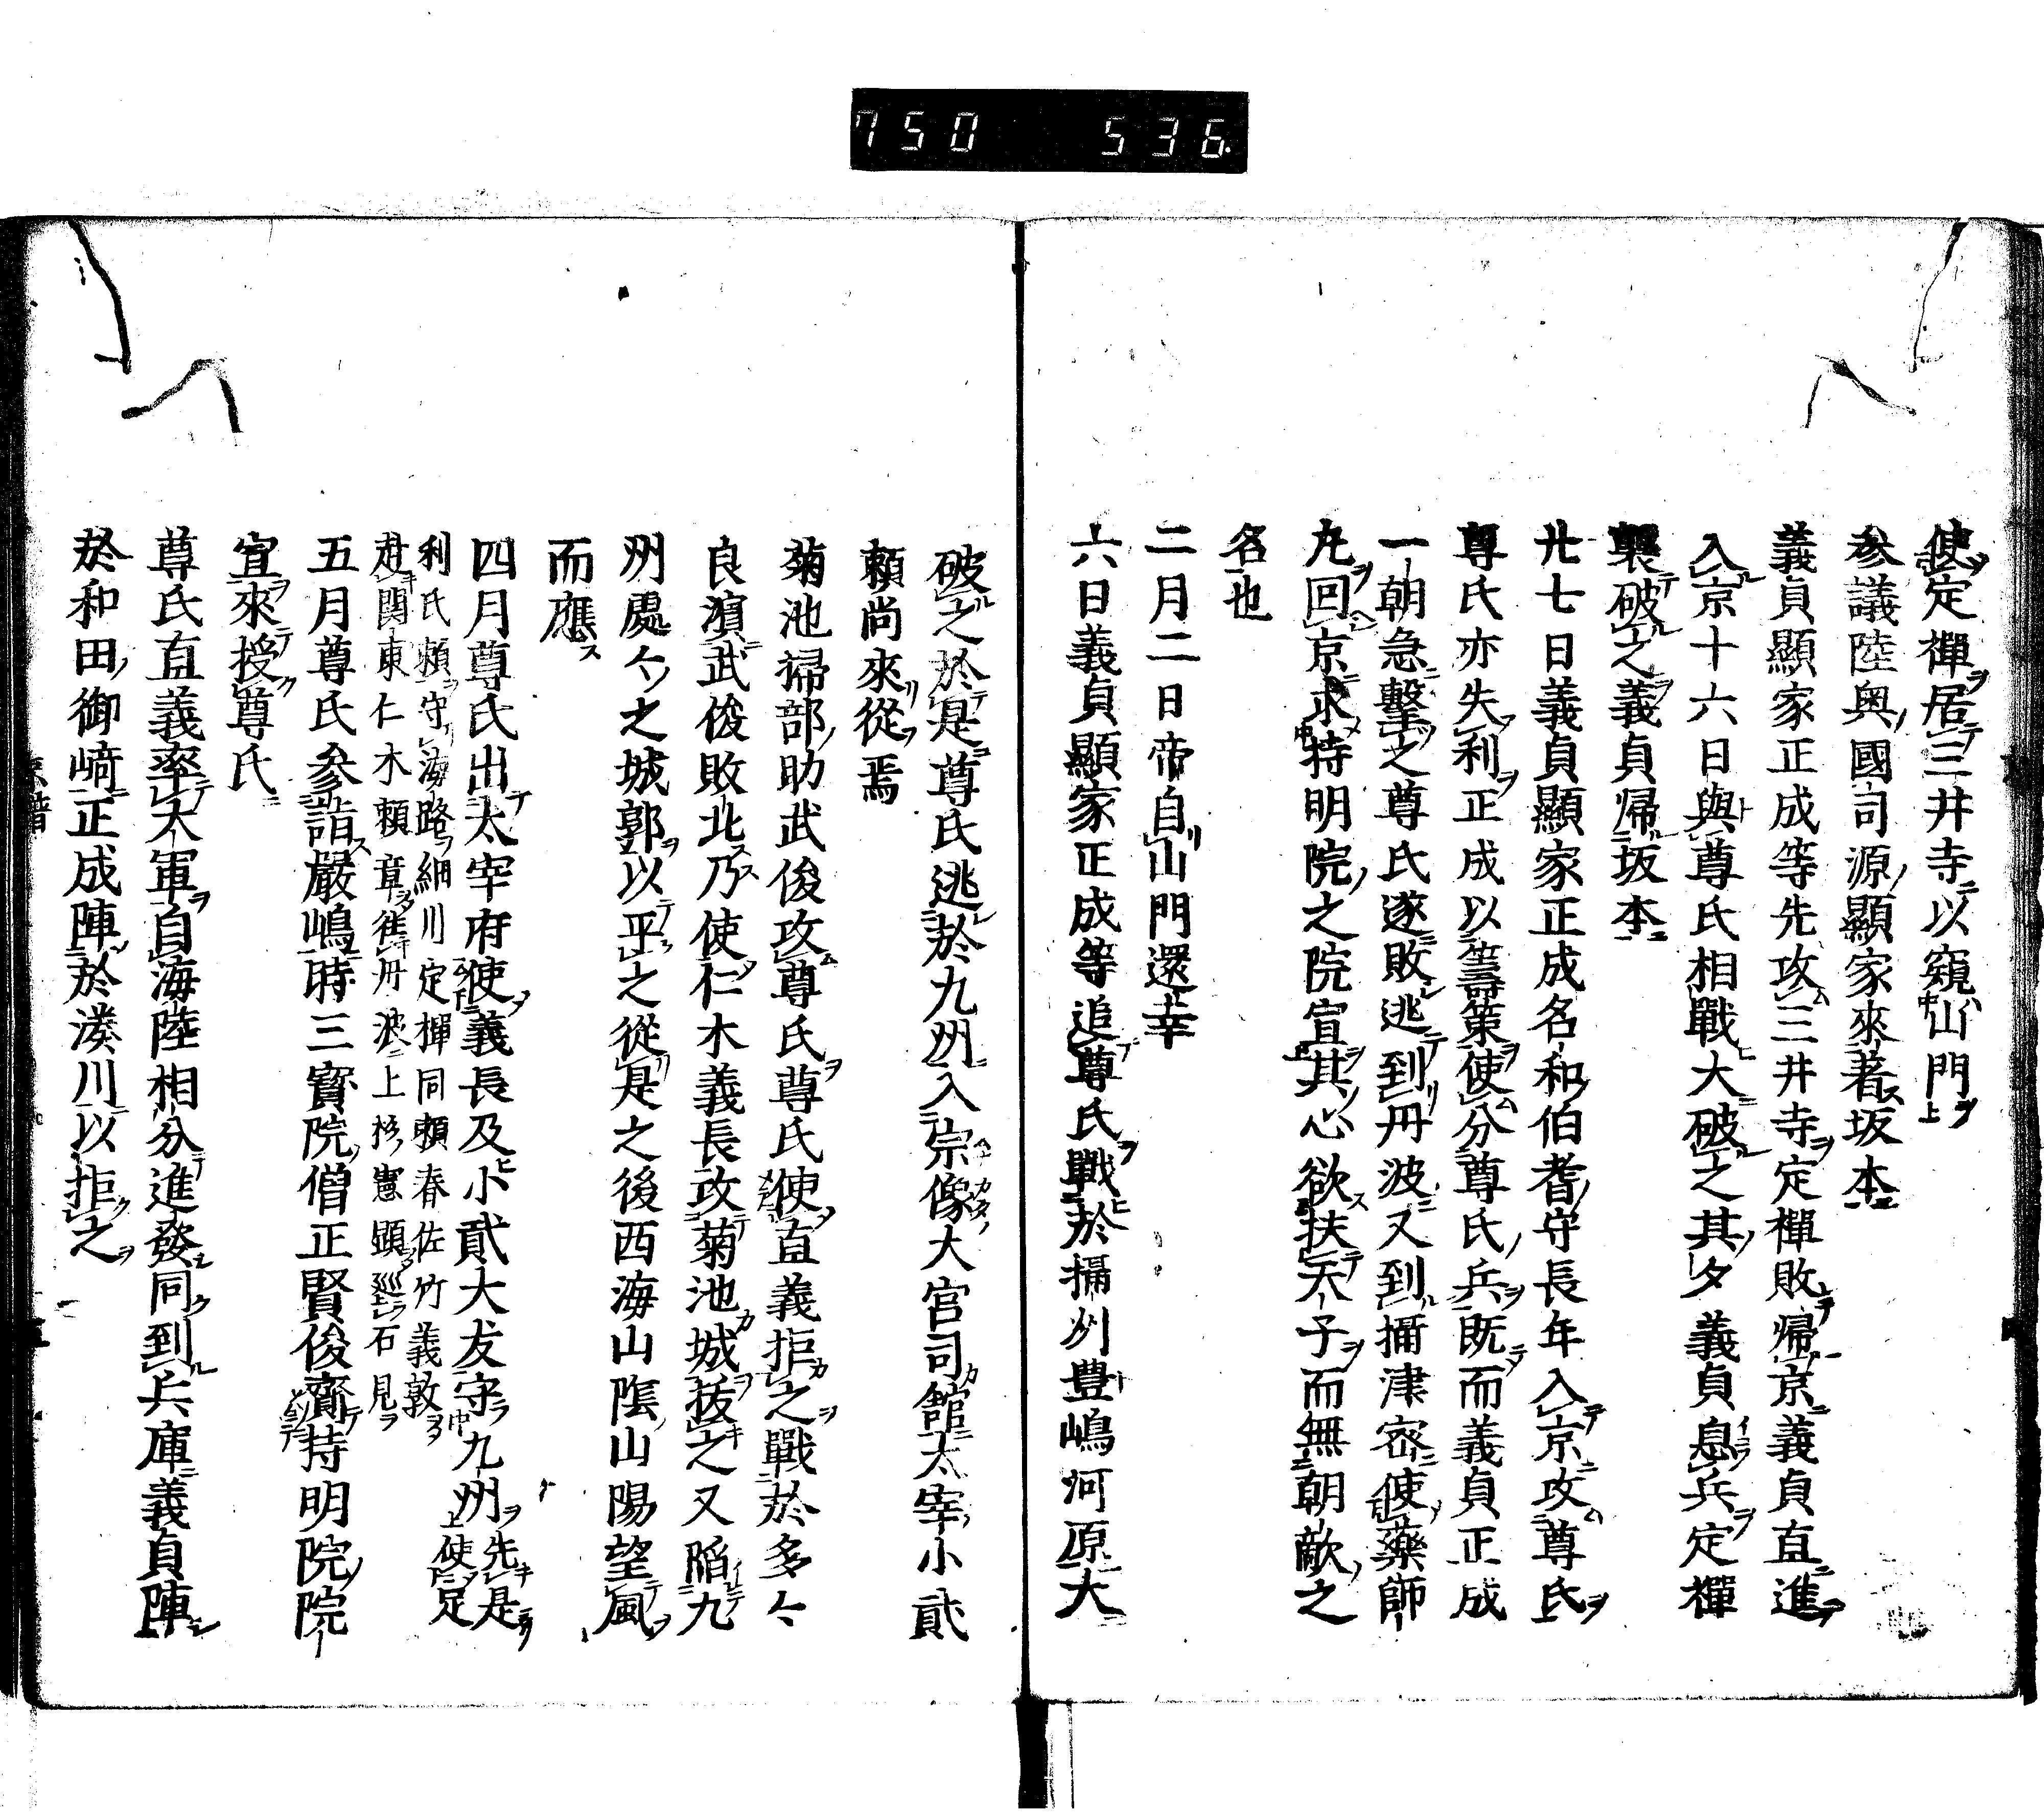 750 536
使定禅居三井寺以窺山門
参議陸奥國司源顯家來著坂本
義貞顯家正成等先攻三井寺定禅敗帰京義貞直進
入京十六日與尊氏相戰大破之其夕義貞息兵定禅
襲破之義貞帰坂本
廿七日義貞顯家正成名和伯耆守長年入京攻尊氏
尊氏亦失利正成以籌策使分尊氏兵既而義貞正成
一朝急擊之尊氏遂敗逃到丹波又到攝津密使藥師
丸回京求持明院之院宣其心欲扶天子而無朝敵之
名也
二月二日帝自山門還幸
六日義貞顯家正成等追尊氏戰於攝州豊嶋河原大
破之於是尊氏逃於九州入宗像大宮司館太宰小貳
頼尚來從焉
菊池掃部助武俊攻尊氏尊氏使直義拒之戰於多々
良濱武俊敗北乃使仁木義長攻菊池城拔之又陷九
州處々之城郭以平之從是之後西海山陰山陽望風
而應
四月尊氏出太宰府使義長及小貳大友守九州先是使足
利氏頼守海路細川定禅同頼春佐竹義敦
赴関東仁木頼章徃丹波上杉憲顕廵石見
五月尊氏参詣嚴嶋時三寳院僧正賢俊齎持明院院
宣來授尊氏
尊氏直義率大軍自海陸相分進發同到兵庫義貞陣
於和田御﨑正成陣於湊川以拒之